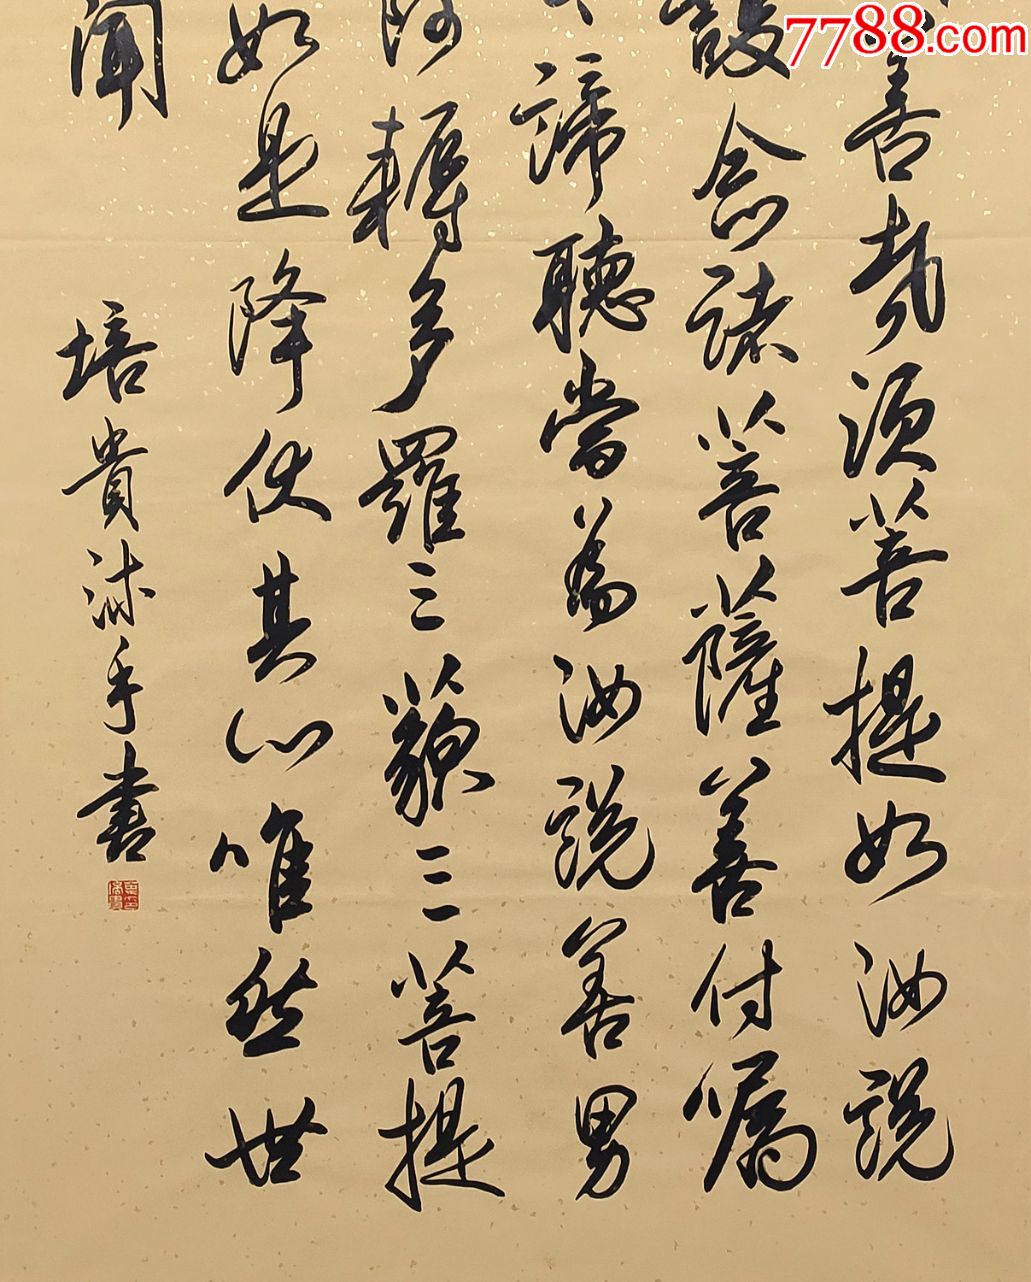 7788.com
善哉須菩提如汝說
念諸菩薩善付囑
諦聽當為汝說善男
耨多羅三藐三菩提
如是降伏其心唯然世
聞
培貴沐手書